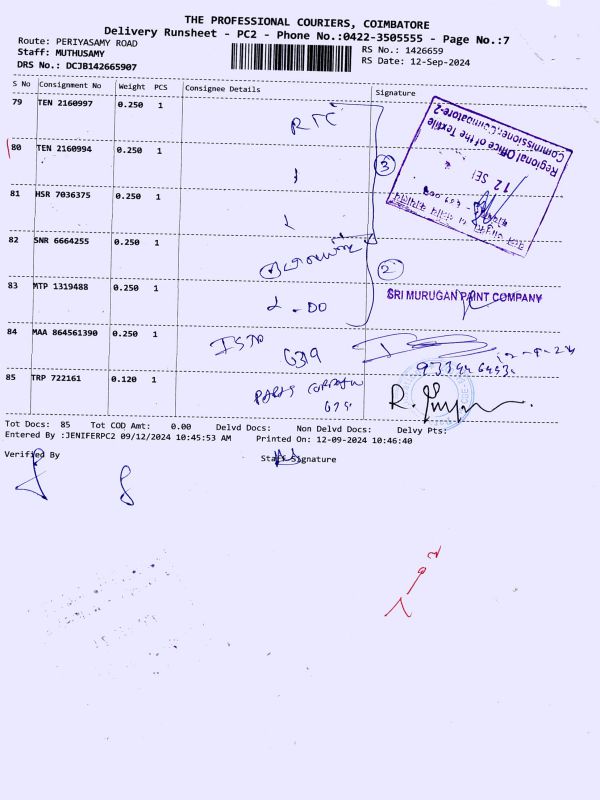 THE PROFESSIONAL COURIERS, COIMBATORE
Delivery Runsheet - PC2 - Phone No.:0422-3505555 - Page No.:7
Route: PERIYASAMY ROAD
Staff: MUTHUSAMY
DRS No.: DCJB142665907
RS No.: 1426659
RS Date: 12-Sep-2024
S No Consignment No Weight PCS Consignee Details Signature
79 TEN 2160997 0.250 1
80 TEN 2160994 0.250 1
3
Regional Office of the Textile
Commissioner, Coimbatore-2
12 SEP
81 HSR 7036375 0.250 1
82 SNR 6664255 0.250 1
2
83 MTP 1319488 0.250 1
DO
SRI MURUGAN PAINT COMPANY
84 MAA 864561390 0.250 1
12-9-24
85 TRP 722161 0.120 1
Tot Docs: 85 Tot COD Amt: 0.00 Delvd Docs: Non Delvd Docs: Delvy Pts:
Entered By :JENIFERPC2 09/12/2024 10:45:53 AM Printed On: 12-09-2024 10:46:40
Verified By Staff Signature